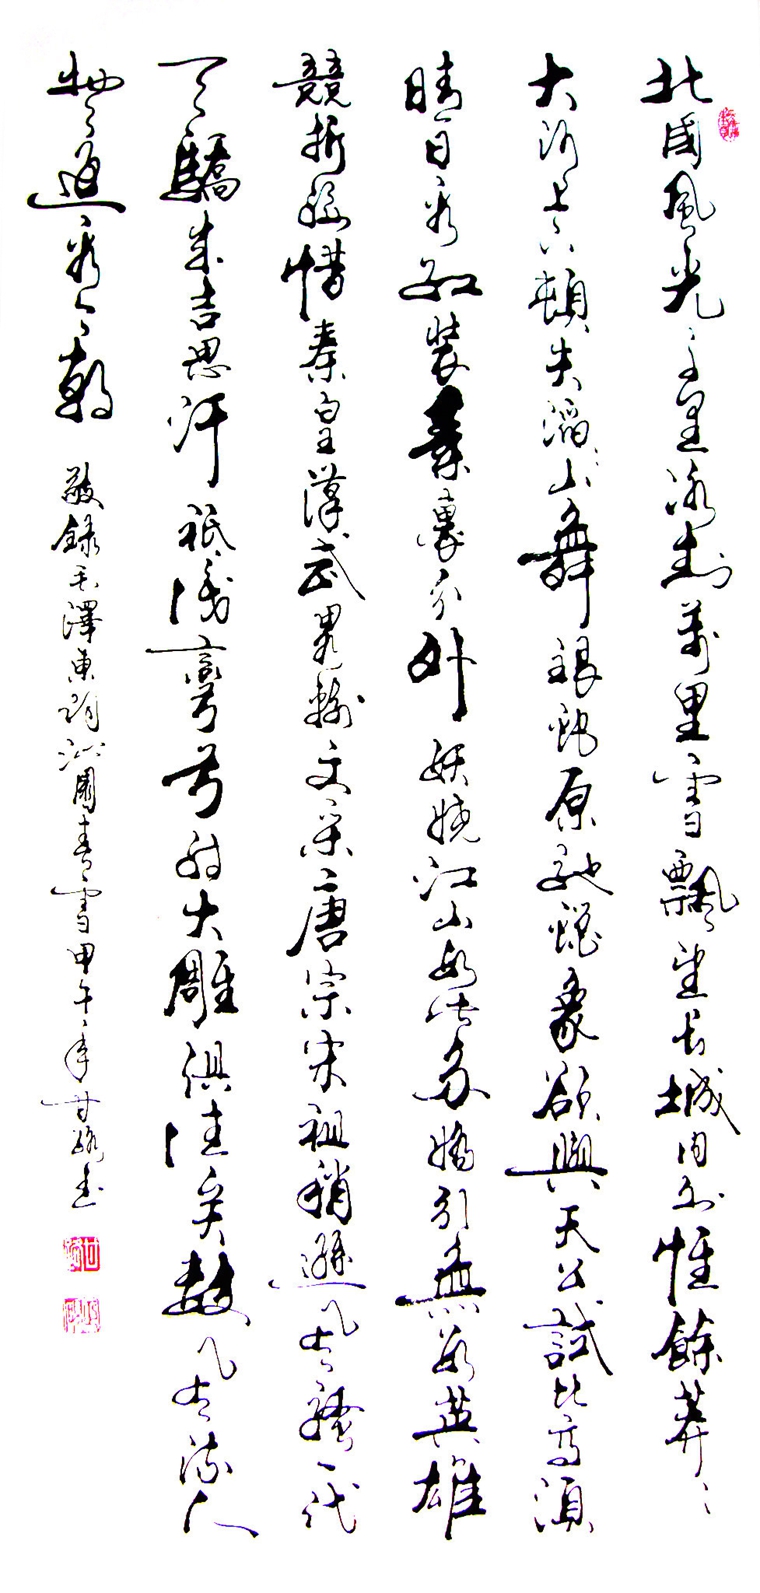 北國風光千里冰封萬里雪飄望長城內外惟餘莽莽
大河上下頓失滔滔山舞銀蛇原馳蠟象欲與天公試比高須
晴日看紅裝素裹分外妖嬈江山如此多嬌引無數英雄
競折腰惜秦皇漢武略輸文采唐宗宋祖稍遜風騷一代
天驕成吉思汗祇識彎弓射大雕俱往矣數風流人
物還看今朝
敬錄毛澤東詞沁園春雪甲午年甘書